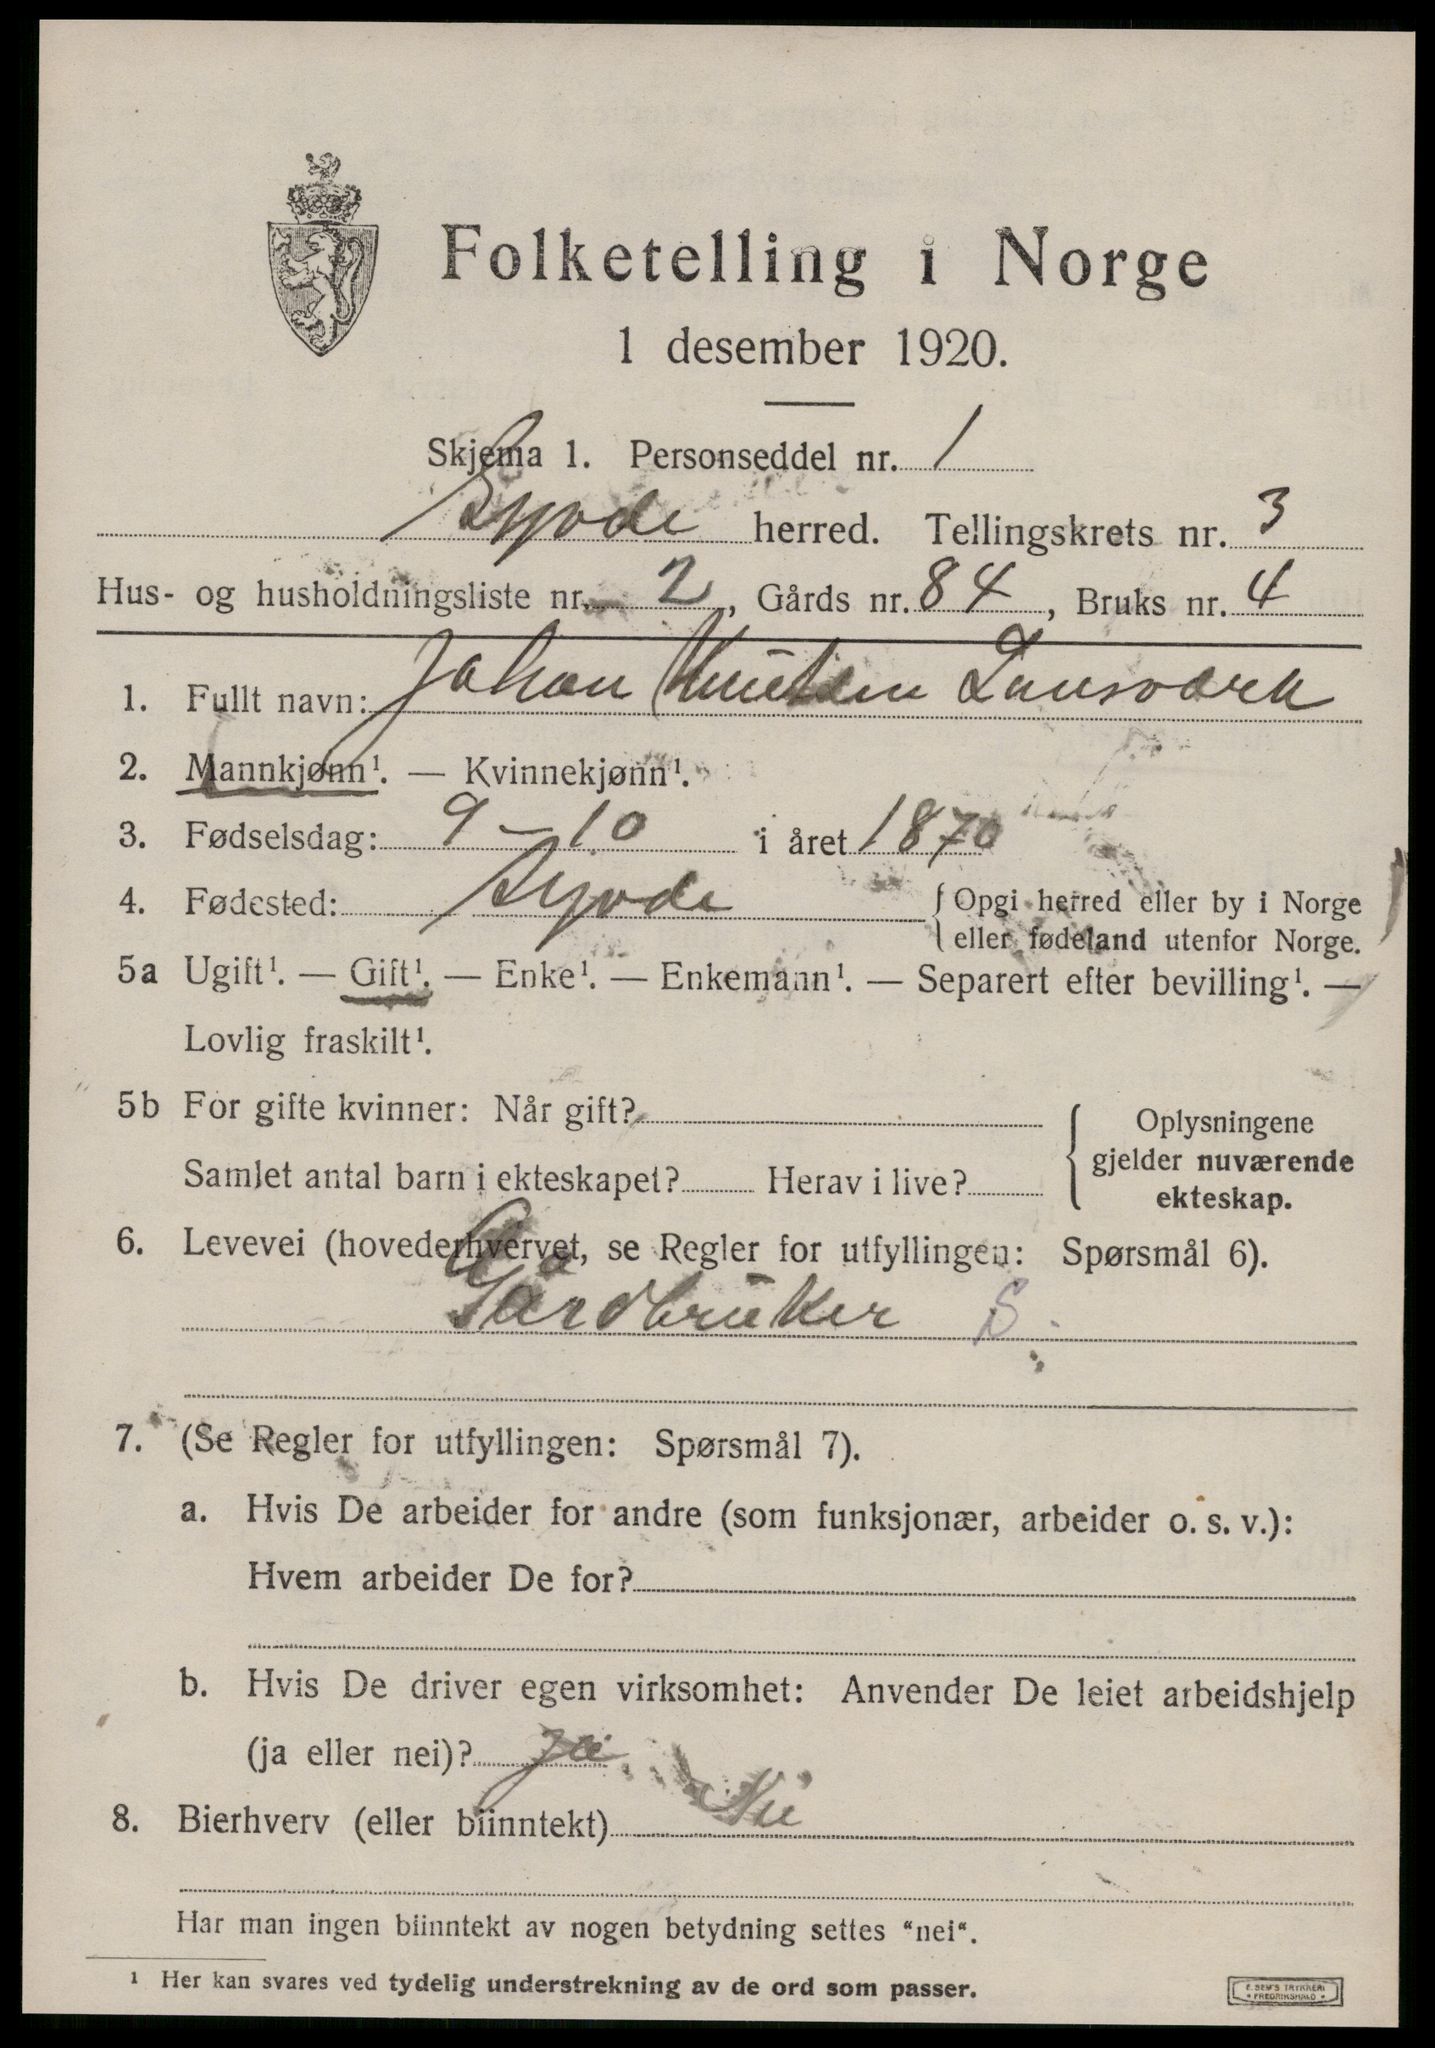 Folketelling i Norge
1 desember 1920.
Skjema 1. Personseddel nr. 1
Syvde herred. Tellingskrets nr. 3
Hus- og husholdningsliste nr. 2, Gårds nr. 84, Bruks nr. 4
1. Fullt navn: Johan Knutsen
2. Mannkjønn¹. — Kvinnekjønn¹.
3. Fødselsdag: 9 – 10 i året 1870
4. Fødested: Syvde {Opgi herred eller by i Norge
eller fødeland utenfor Norge.
5a Ugift¹. — Gift¹. — Enke¹. — Enkemann¹. — Separert efter bevilling¹. —
Lovlig fraskilt¹.
5b For gifte kvinner: Når gift?
Samlet antal barn i ekteskapet? Herav i live?
Oplysningene
gjelder nuværende
ekteskap.
6. Levevei (hovederhvervet, se Regler for utfyllingen: Spørsmål 6).
Gårdbruker S.
7. (Se Regler for utfyllingen: Spørsmål 7).
a. Hvis De arbeider for andre (som funksjonær, arbeider o. s. v.):
Hvem arbeider De for?
b. Hvis De driver egen virksomhet: Anvender De leiet arbeidshjelp
(ja eller nei)? ja
8. Bierhverv (eller biinntekt) Nei
Har man ingen biinntekt av nogen betydning settes "nei".
¹ Her kan svares ved tydelig understrekning av de ord som passer.
E. SEM'S TRYKKERI
• FREDRIKSHALD •